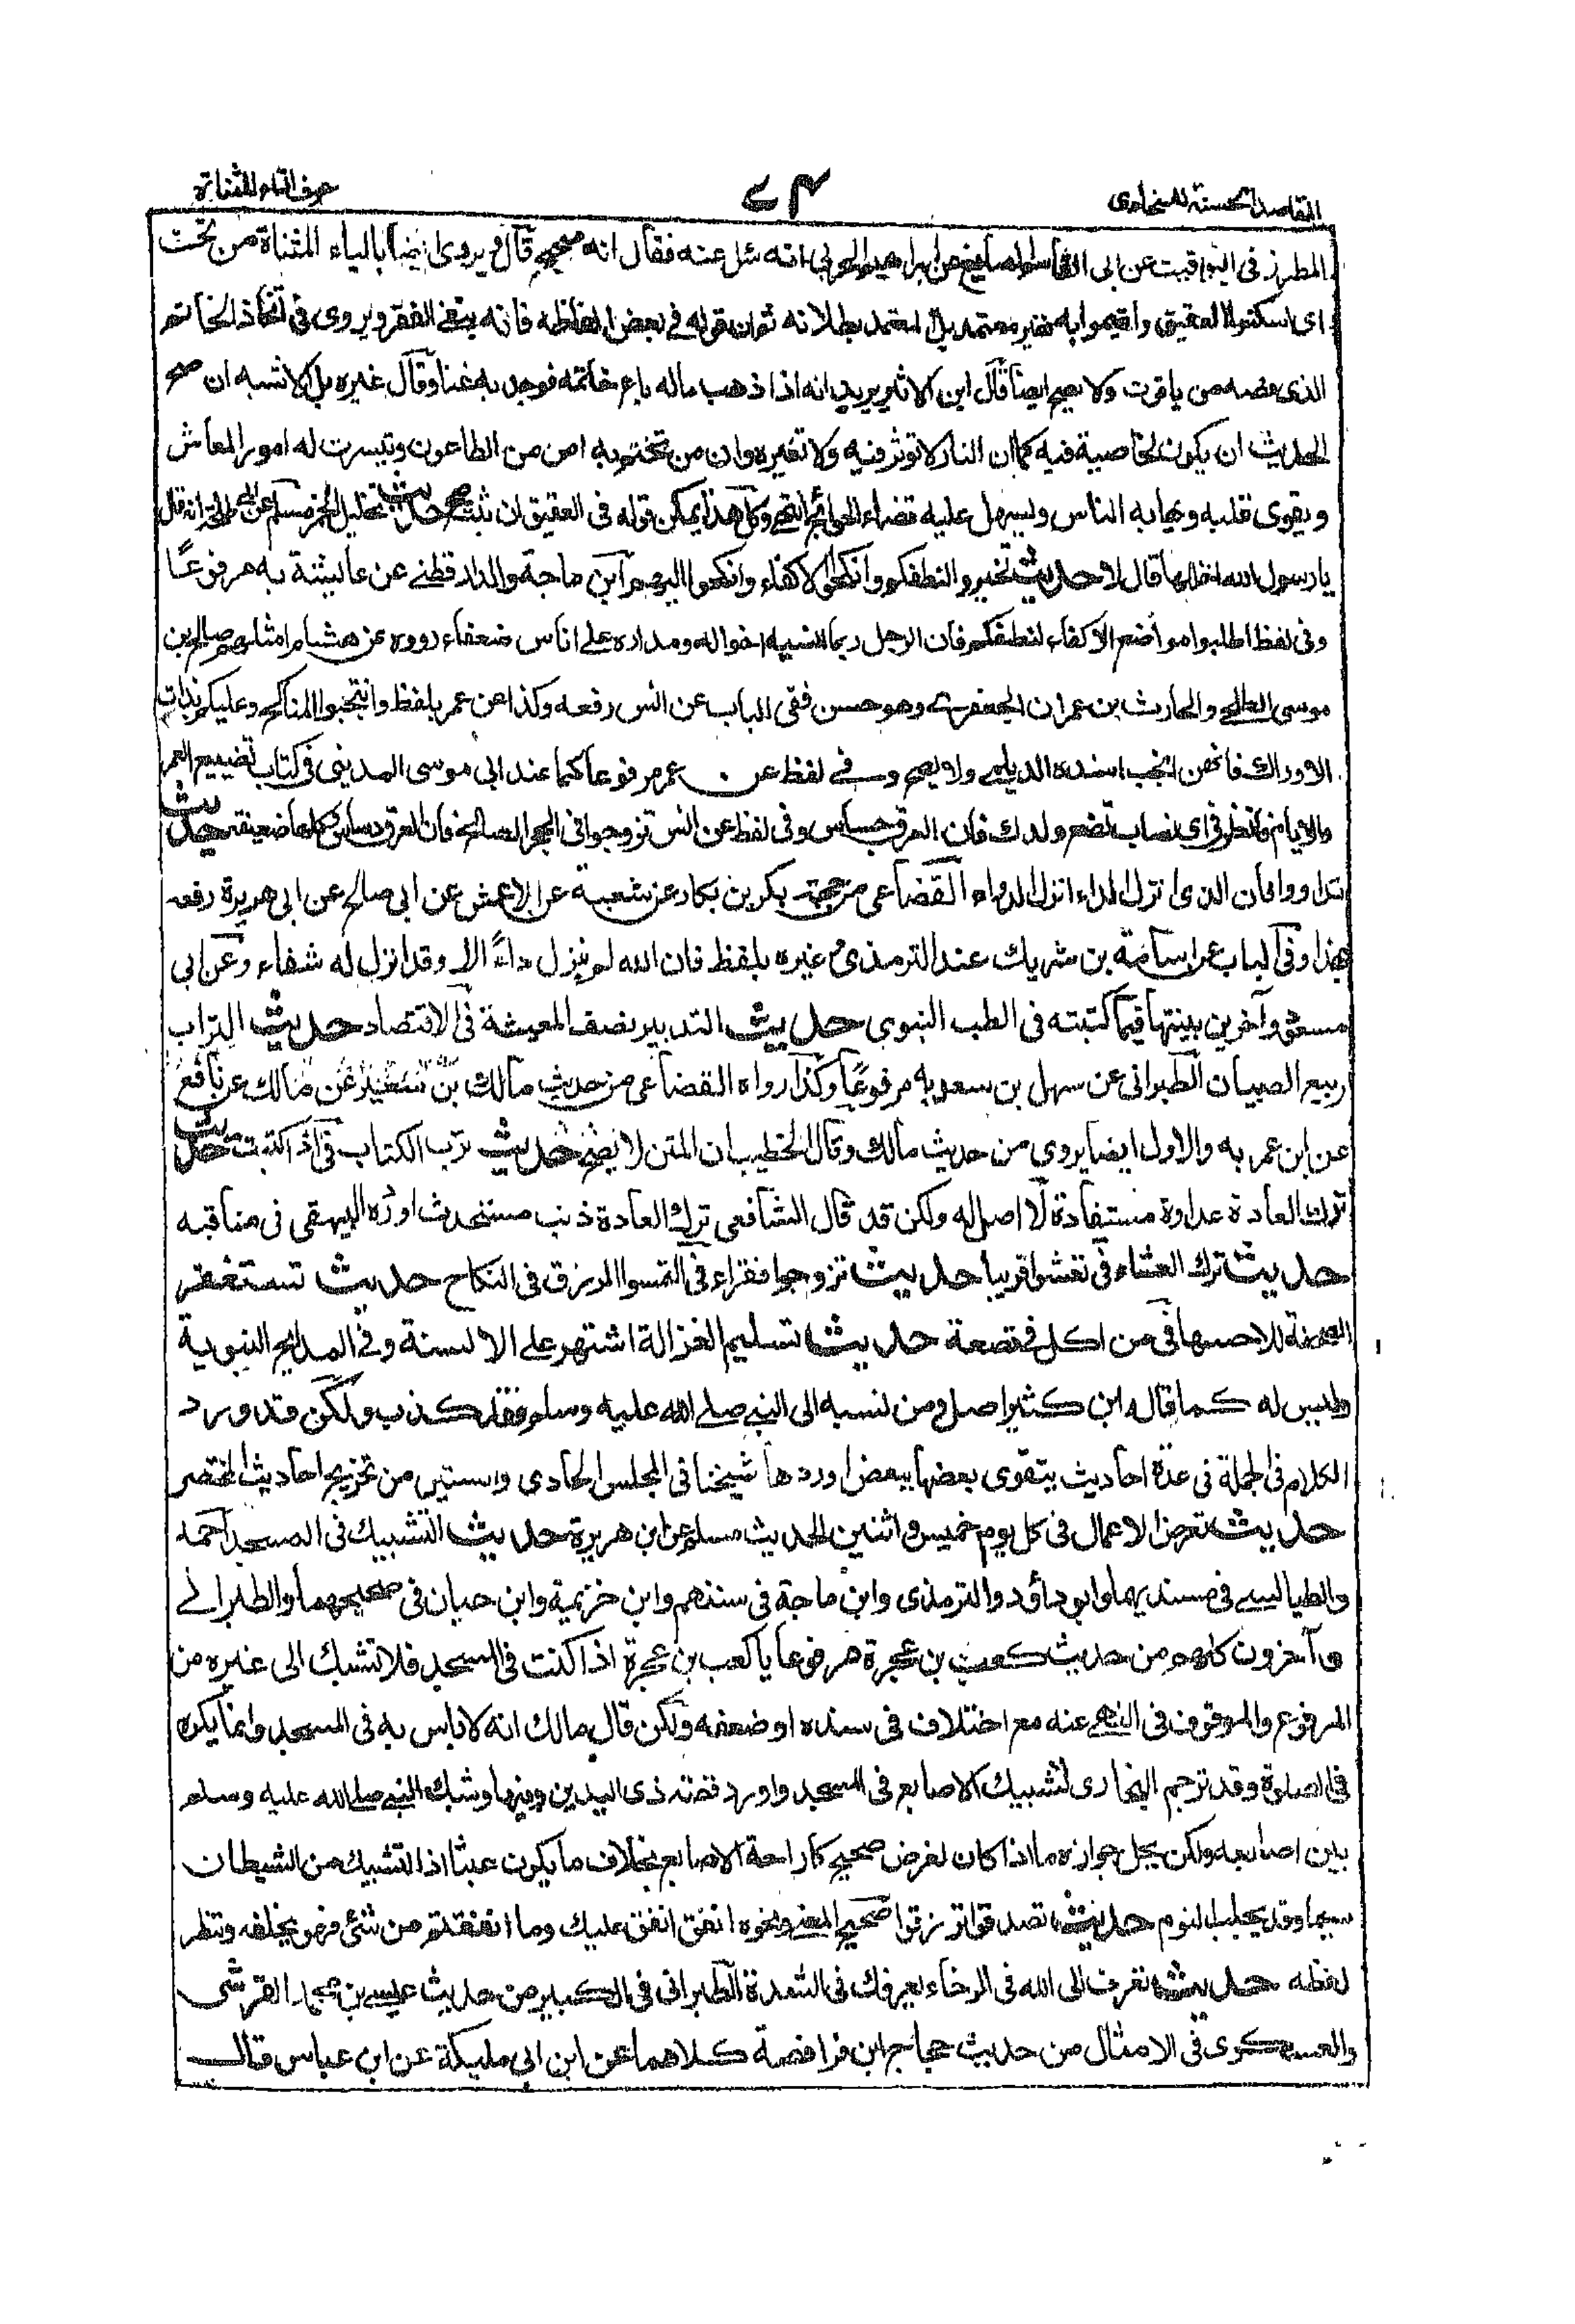 المقاصد الحسنة للسخاوى
٧٤
حرف التاء المثناة
المطرز فى اليواقيت عن ابى القاسم الصايغ عن ابراهيم الحربى انه سئل عنه فقال انه صحيح قال ويروى ايضا بالياء المثناة من تحت
اى اسكنوا العقيق واقيموا به فغير معتمد بل المعتمد بطلانه ثم ان قوله فى بعض الفاظه فانه ينفى الفقر ويروى فى اتخاذ الخاتم
الذى فصه من ياقوت ولا يصح ايضا قال ابن الاثير يريد انه اذا ذهب ماله باع خاتمه فوجد به غنا وقال غيره بل الاشبه ان صح
الحديث ان يكون لخاصية فيه كما ان النار لا توثر فيه ولا تغيره وان من تختم به امن من الطاعون وتيسرت له امور المعاش
ويقوى قلبه ويهابه الناس ويسهل عليه قضاء الحوائج انتهى وكل هذا يمكن قوله فى العقيق ان ثبت حديث تخليل الخمر مسلم عن ابى طلحة انه قال
يا رسول الله اخللها قال لا حديث تخيروا لنطفكم وانكحوا الاكفاء وانكحوا اليهم ابن ماجة والدارقطنے عن عايشة به مرفوعًا
وفى لفظ اطلبوا مواضع الاكفاء لنطفكم فان الرجل ربما اشبه اخواله ومداره علے اناس ضعفاء رووه عن هشام امثلهم صالح بن
موسى الطلحے والحارث بن عمران الجعفرے وهو حسن ففى الباب عن انس رفعه وكذا عن عمر بلفظ وانتخبوا المناكح وعليكم بذات
الاوراك فانهن انجب اسنده الديلمے ولا يصح وفے لفظ عن عمر مرفوعا كما عند ابى موسى المدينى فى كتاب تضييع العمر
والايام وانظر فى اى نصاب تضع ولدك فان العرق دساس وفى لفظ عن انس تزوجوا فى الحجز الصالح فان العرق دساس وكلها ضعيفة حديث
تداووا فان الذى انزل الداء انزل الدواء القضاعى من جهة بكر بن بكار عن شعبة عن الاعمش عن ابى صالح عن ابى هريرة رفعه
بهذا وفى الباب عن اسامة بن شريك عند الترمذى وغيره بلفظ فان الله لم ينزل داءً الا وقد انزل له شفاء وعن ابى
مسعود وآخرين بينتها فيما كتبته فى الطب النبوى حديث التدبير نصف المعيشة فى الاقتصاد حديث التراب
ربيع الصبيان الطبرانى عن سهل بن سعد به مرفوعًا وكذا رواه القضاعى من حديث مالك بن سعير عن مالك عن نافع
عن ابن عمر به والاول ايضا يروى من حديث مالك وقال الخطيب ان المتن لا يصح حديث ترب الكتاب فى اذا كتبت حديث
ترك العادة عداوة مستفادة لا اصل له ولكن قد قال الشافعى ترك العادة ذنب مستحدث اورده البيهقى فى مناقبه
حديث ترك العشاء فى تعشوا قريبا حديث تزوجوا فقراء فى التمسوا الرزق فى النكاح حديث تستغفر
القصعة للاحسها فى من اكل فى قصعة حديث تسليم الغزالة اشتهر على الالسنة وفى المدايح النبوية
وليس له كما قاله ابن كثير اصل ومن نسبه الى النبى صلے الله عليه وسلم فقد كذب ولكن قد ورد
الكلام فى الجملة فى عدة احاديث يتقوى بعضها ببعض اوردها شيخنا فى المجلس الحادى والستين من تخريج احاديث المختصر
حديث تعرض الاعمال فى كل يوم خميس واثنين الحديث مسلم عن ابى هريرة حديث التشبيك فى المسجد احمد
والطيالسے فى مسنديهما وابو داؤد والترمذى وابن ماجة فى سننهم وابن خزيمة وابن حبان فى صحيحهما والطبرانے
وآخرون كلهم من حديث كعب بن عجرة مرفوعا يا كعب بن عجرة اذا كنت فى المسجد فلا تشبك الى غيره من
المرفوع والموقوف فى النهى عنه مع اختلاف فى سنده او ضعفه ولكن قال مالك انه لا باس به فى المسجد وانما يكره
فى الصلوة وقد ترجم البخارى لتشبيك الاصابع فى المسجد واورد قصة ذى اليدين وفيها وشبك النبى صلے الله عليه وسلم
بين اصابعه ولكن يحل جوازه ما اذا كان لغرض صحيح كاراحة الاصابع بخلاف ما يكون عبثا اذ التشبيك من الشيطان
سيما وقد يجلب النوم حديث تصدقوا ترزقوا صحيح المعنى ونحوه انفق انفق عليك وما انفقتم من شئ فهو يخلفه وينظر
لفظه حديث تعرف الى الله فى الرخاء يعرفك فى الشدة الطبرانى فى الكبير من حديث عيسے بن محمد القرشى
والعسكرى فى الامثال من حديث حجاج ابن فرافصة كلاهما عن ابن ابى مليكة عن ابن عباس قال